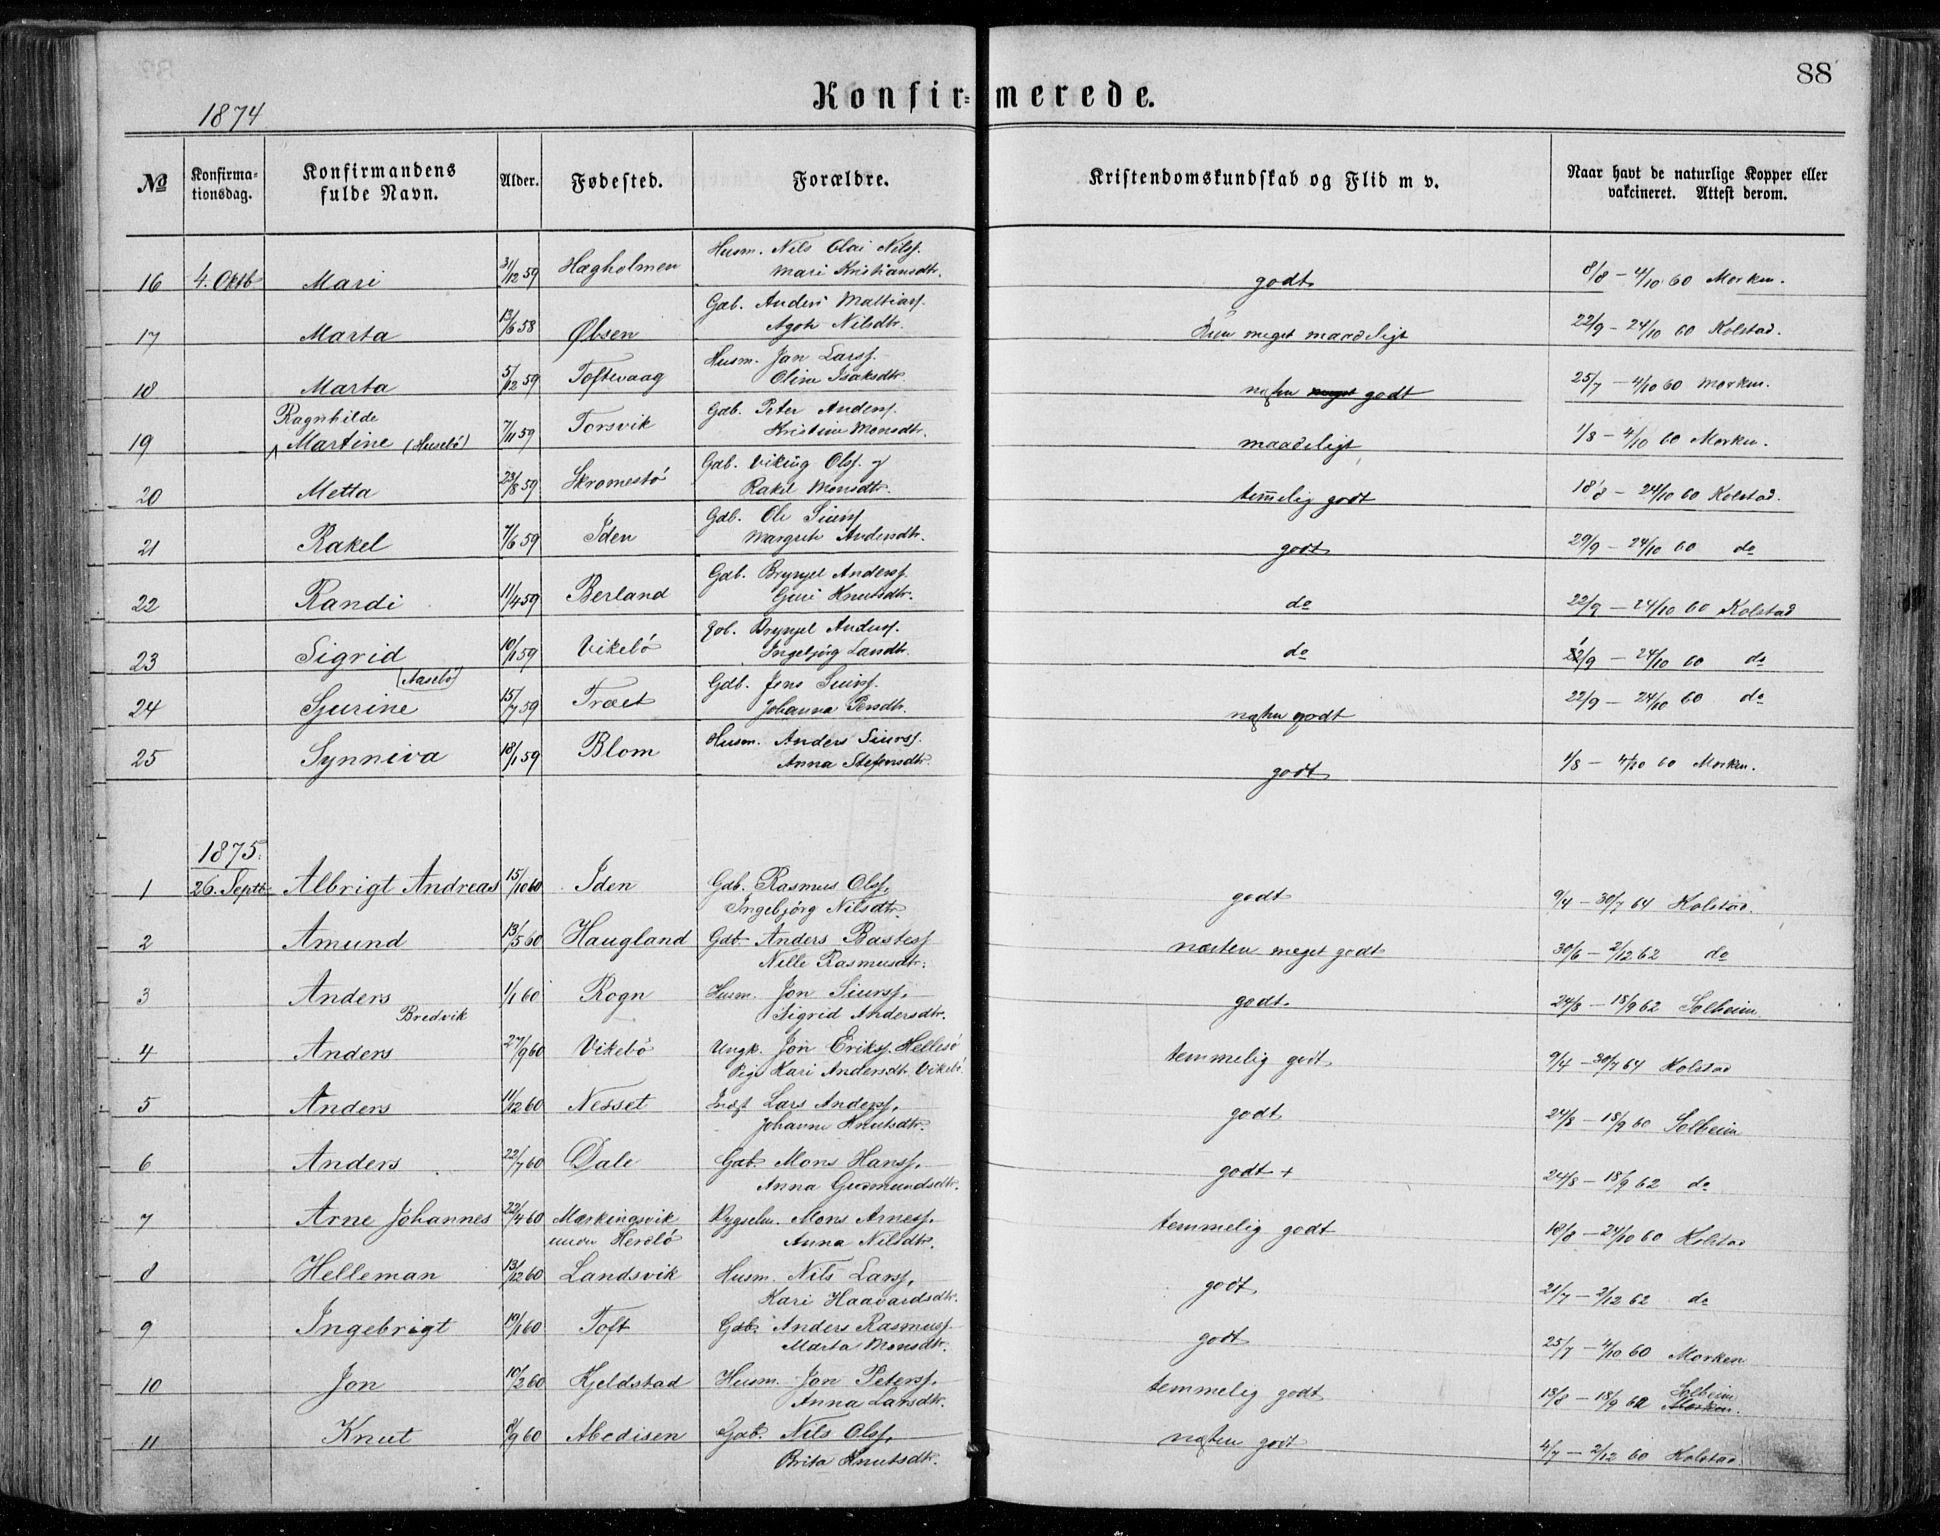 88
Konfirmerede.
1874
No Konfirmationsdag. Konfirmandens fulde Navn. Alder. Fødested. Forældre. Kristendomskundskab og Flid m v. Naar havt de naturlige Kopper eller vakcineret. Attest derom.
16 4. Oktb Mari 31/12 59 Hægholmen Husm. Nils Olai Nilss. godt 8/8 – 4/10 60 Morken.
Mari Kristiansdtr.
17 Marta 13/6 58 Øbsen Gab. Anders Mattiass. meget maadeligt 22/9 – 24/10 60 Kolstad.
Nilsdtr.
18 Marta 5/12 59 Toftevaag Husm. Jan Larss. næsten meget godt 25/7 – 4/10 60 Morken.
Olina Isaksdtr.
Ragnhilde
19 Martine (Husebö) 7/11 59 Torsvik Gab. Peter Anderss. maadeligt 1/8 – 4/10 60 Morken.
Kristine Monsdtr.
20 Metta 23/8 59 Skromestö Gab. Viking Olss. temmelig godt 18/8 – 24/10 60 Kolstad.
Rakel Monsdtr.
21 Rakel 7/6 59 Iden Gdb. Ole Siurss. godt 29/9 – 24/10 60 do
Margrete Andersdtr.
22 Randi 11/4 59 Berland Gdb. Brynjel Anderss. do 22/9 – 24/10 60 Kolstad
Guri Knutsdtr.
23 Sigrid 10/1 59 Vikebö Gdb. Brynjel Anderss. do 22/9 – 24/10 60 do
Ingebjörg Larsdtr.
(Aasebö)
24 Sjurine 15/7 59 Træet Gdb. Jens Siurss. næsten godt 22/9 – 24/10 60 do
Johanna Persdtr.
25 Synniva 18/1 59 Blom Husm. Anders Siurss. godt 1/8 – 4/10 60 Morken.
Anna Stefensdtr.
1875.
1 26. Septb Albrigt Andreas 15/10 60 Iden Gdb. Rasmus Olss. godt 9/4 – 30/7 64 Kolstad.
Ingebjörg Nilsdtr.
2 Amund 13/5 60 Haugland Gdb Anders Bastess næsten meget godt 30/6 – 2/12 62 do
Nille Rasmusdtr.
3 Anders 1/1 60 Rogn Husm. Jon Siurss. godt. 24/8 – 18/9 62 Solheim
Bredvik Sigrid Andersdtr.
4 Anders 27/9 60 Vikebö Ungk. Jon Erikss. Hellesö temmelig godt 9/4 – 30/7 64 Kolstad
Pige Kari Andersdtr. Vikebö.
5 Anders 11/12 60 Nesset Indst Lars Anderss. godt 24/8 – 18/9 60 Solheim
Johanne Knutsdtr.
6 Anders 22/7 60 Dale Gab Mons Hanss. godt + 24/8 – 18/9 62 do
Anna Gudmundsdtr.
7 Arne Johannes 22/4 60 Mærkingsvik Mons Arness. temmelig godt 18/8 – 24/10 60 Kolstad
under Herdlö Anna Nilsdtr.
8 Helleman 13/12 60 Landsvik Husm. Nils Larss. godt 21/7 – 2/12 62 do
Kari Haavardsdtr.
9 Ingebrigt 19/1 60 Toft Gdb. Anders Rasmuss godt 25/7 – 4/10 60 Morken
Marta Monsdtr.
10 Jon 10/2 60 Kjeldstad Husm. Jon Peterss. temmelig godt 18/8 – 18/9 62 Solheim Morken.
Anna Larsdtr.
11 Knut 8/9 60 Abedisen Gdb. Nils Olss. næsten godt 4/7 – 2/12 60 Kolstad
Brita Knutsdtr.